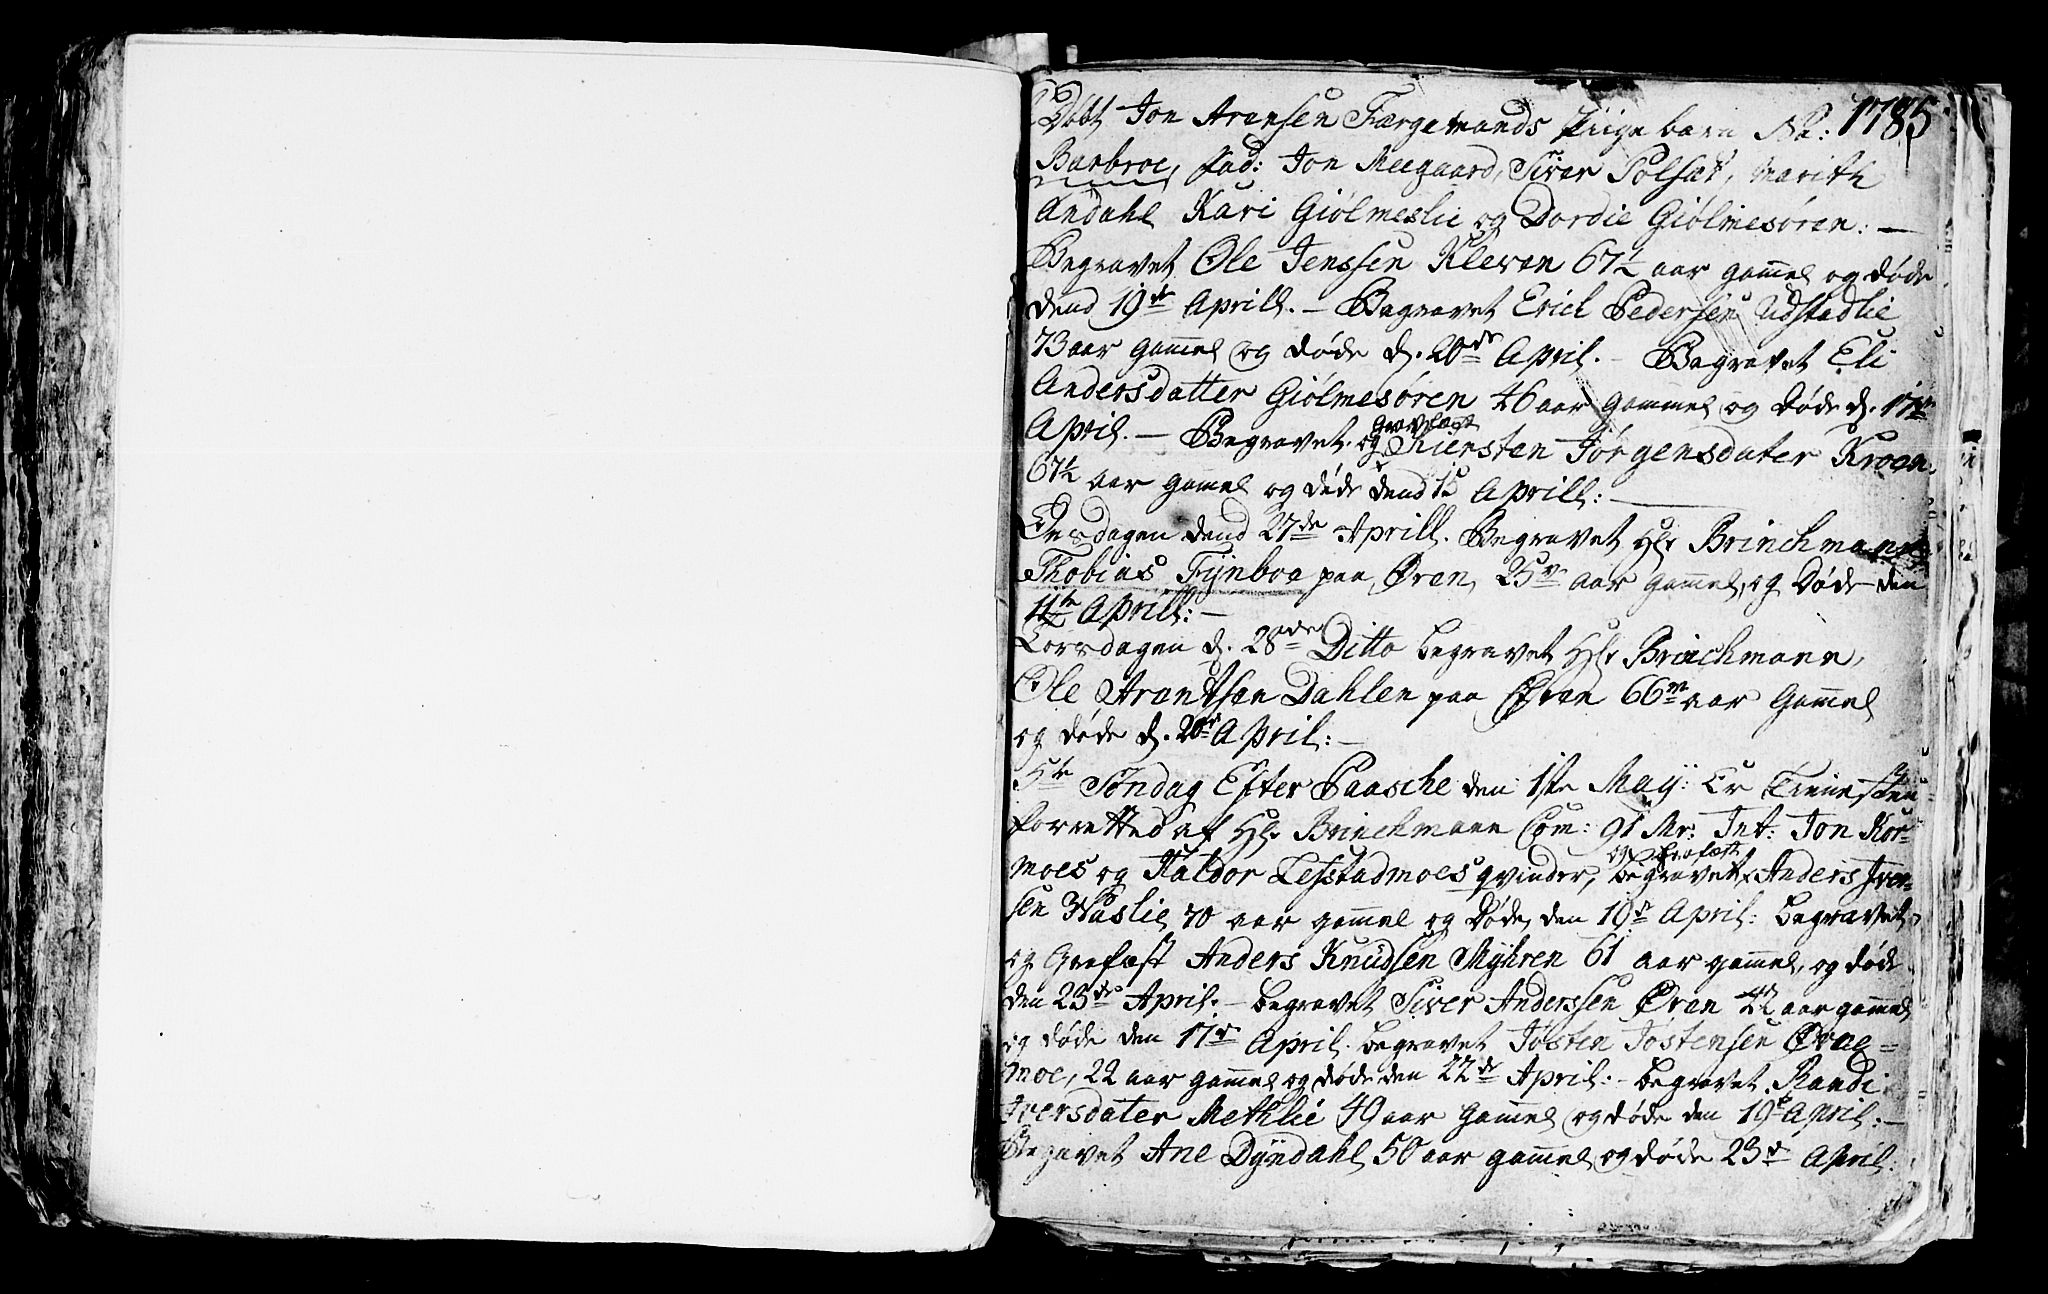 Døbt Jon Arensen Færgemands Piigebarn No: 1785
Barbroe, fad: Jon Meegaard, Siver Polsæt, Marith
Andahl Kari Giølmeslie og Dordie Giølmesøren: —
Begravet Ole Jenssen Kleven 67½ aar gammel og døde
dend 19de Aprill. — Begravet Erich Pedersen Udstadlie
73 aar gammel og døde d. 20de April. — Begravet Eli
Andersdatter Giølmesøren 46 aar gammel og døde d. 17de
April. — Begravet og Gravfæst Kiersten Jørgensdater Kroen
67½ aar gamel og døde dend 15 Aprill: —
Onsdagen dend 27de Aprill. Begravet Hr Brinchmann
Thobias Fijnboe paa Øren, 25 aar gammel, og døde den
11te Aprill: —
Torsdagen d. 28de Ditto begravet Hr Brinchmann,
Ole Arentsen Dahlen paa Øren 66 aar Gammel
og døde d. 20de April: —
5te Søndag Efter Paasche den 1ste Maij: Er Tienesten
forretted af Hr Brinchmann Com: 91 Mr: Int: Jon Kor-
moes og Haldor Lefstadmoes qvinder, begravet og Grafæst Anders Iver-
sen Waslie 70 aar gammel og døde den 19de April: begravet
og Grafæst Anders Knudsen Myhren 61 aar gammel, og døde
den 23de April. — begravet Siver Anderssen Øren 42 aar gammel
og døde den 17de April. begravet Jøsten Jøstensen Øvae-
moe, 22 aar gammel og døde den 22de April: — begravet Randi
Iversdater Methlie 49 aar Gammel og døde den 19de April: —
Begavet Ane Dÿndahl 50 aar gammel og døde 23de April: